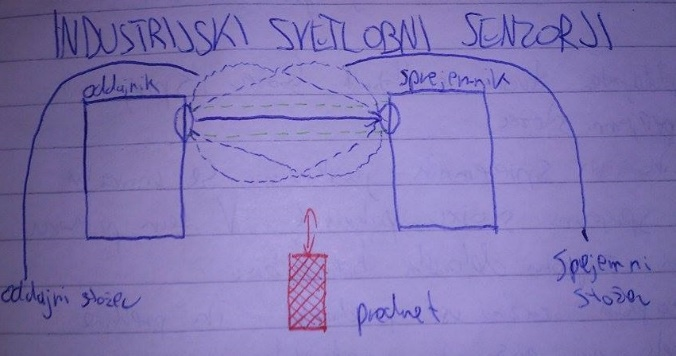 INDUSTRIJSKI SVETLOBNI SENZORJI
oddajnik
sprejemnik
oddajni stožec
Spejemni
stožec
predmet